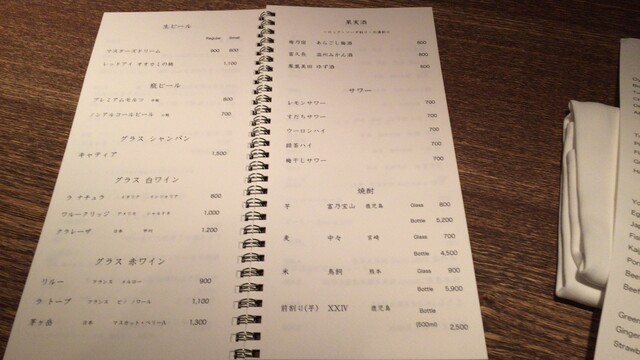 生ビール
Regular Small
マスターズドリーム 900 800
レッドアイ オオカミの桃 1,100
瓶ビール
プレミアムモルツ 小瓶 800
ノンアルコールビール 小瓶 700
グラス シャンパン
キャティア 1,500
グラス 白ワイン
ラ ナチュラ イタリア インツォリア 800
ブルークリッジ アメリカ シャルドネ 1,000
グラレーザ 日本 甲州 1,200
グラス 赤ワイン
リルー フランス メルロー 900
ラ トープ フランス ピノ ノワール 1,100
茅ヶ岳 日本 マスカット・ベリーA 1,300
果実酒
梅乃宿 あらごし梅酒 800
富久長 温州みかん酒 800
鳳凰美田 ゆず酒 800
サワー
レモンサワー 700
すだちサワー 700
ウーロンハイ 700
緑茶ハイ 700
梅干しサワー 700
焼酎
芋 富乃宝山 鹿児島 Glass 800
Bottle 5,200
麦 中々 宮崎 Glass 700
Bottle 4,500
米 鳥飼 熊本 Glass 900
Bottle 5,900
前割り(芋) XXIV 鹿児島 Bottle
(500ml) 2,500